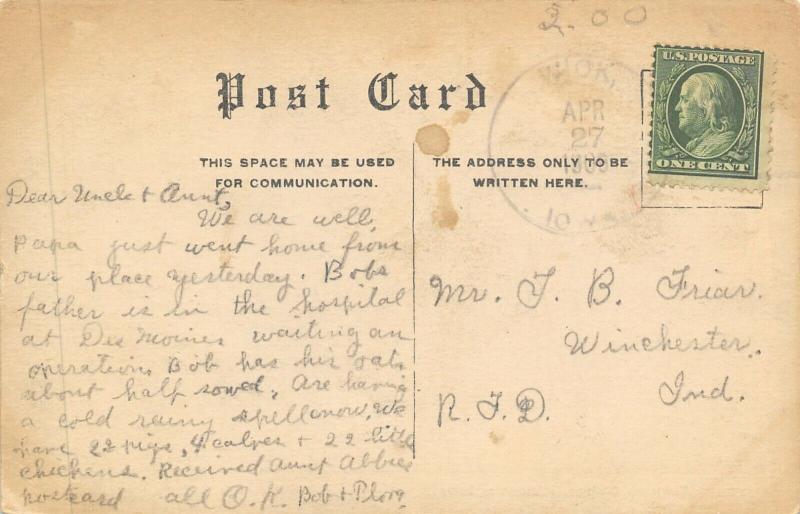 2.00
U.S. POSTAGE
ONE CENT
APR
27
1909
IOWA
Post Card
THIS SPACE MAY BE USED
FOR COMMUNICATION.
THE ADDRESS ONLY TO BE
WRITTEN HERE.
Dear Uncle & Aunt,
We are well,
Papa just went home from
our place yesterday. Bobs
father is in the hospital
at Des Moines waiting an
operation, Bob has his oats
about half sowed. Are having
a cold rainy spell now. We
have 22 pigs, 4 calves & 22 little
chickens. Received Aunt Abbies
postcard all O.K. Bob & Flora
Mr. T. B. Friar.
Winchester,
Ind.
R.F.D.